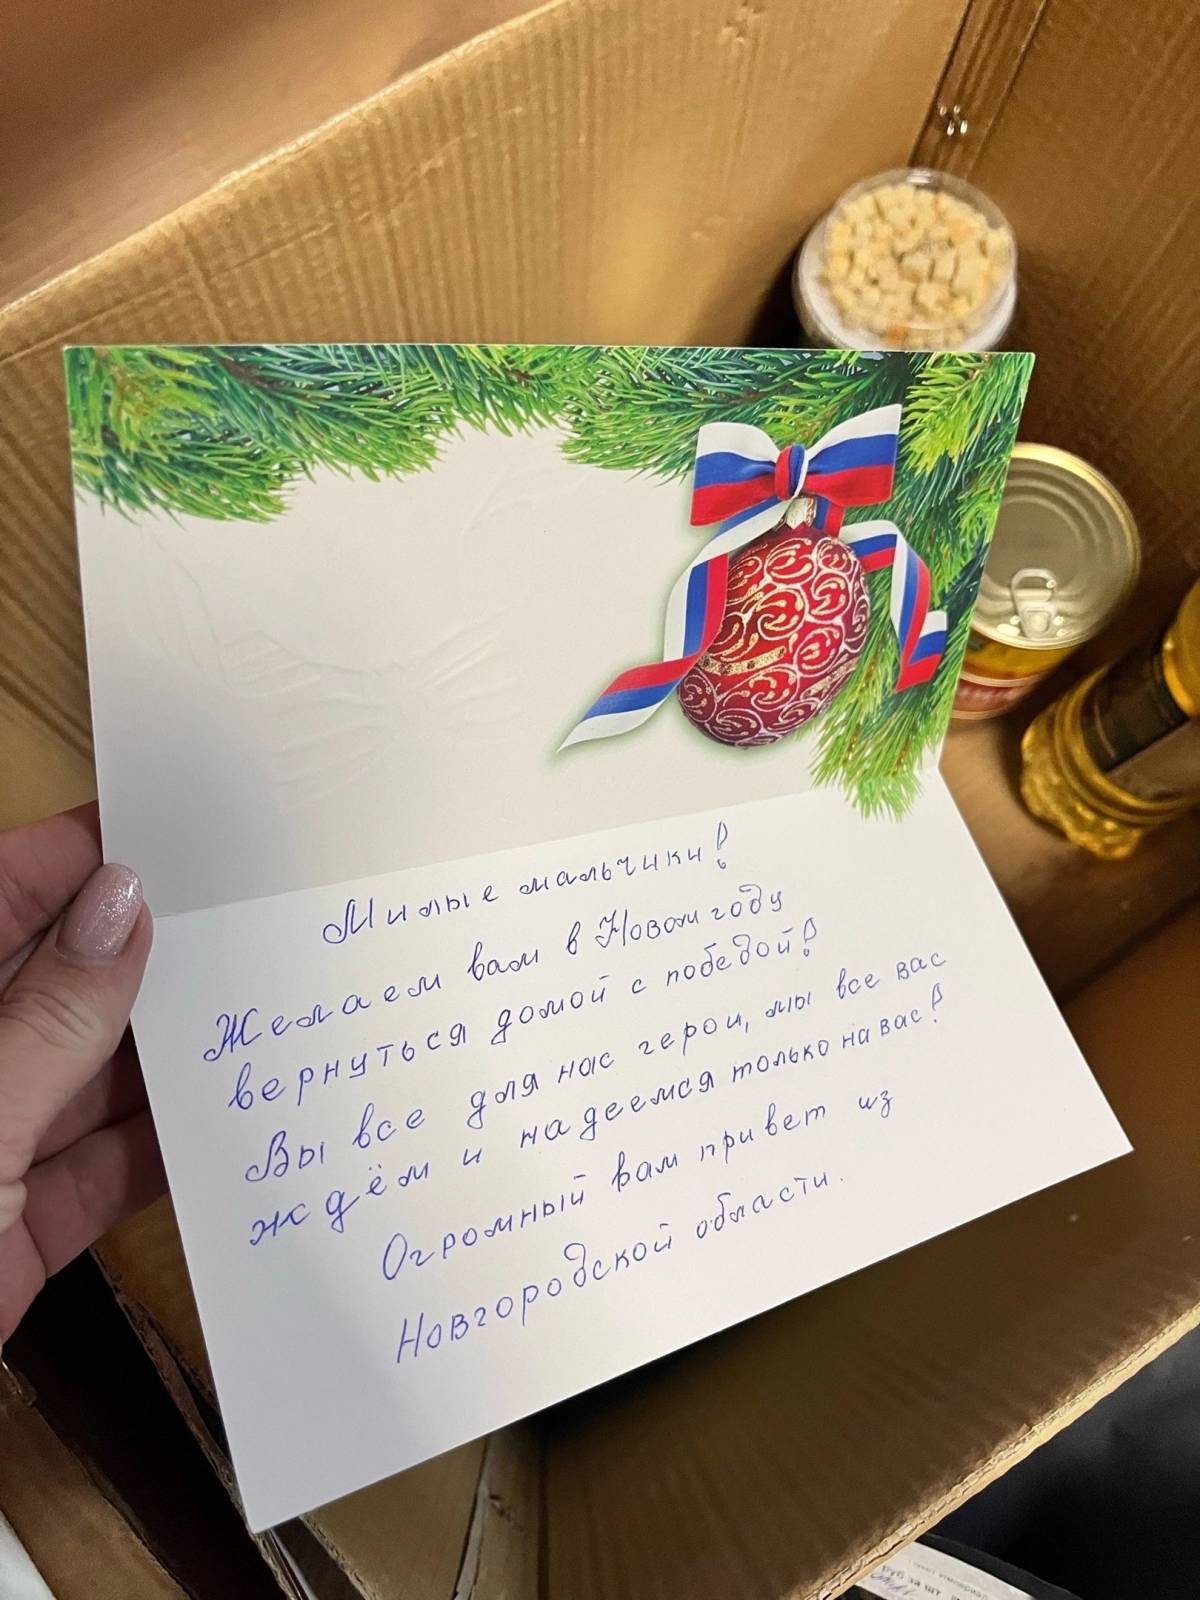 Милые мальчики!
Желаем вам в Новом году
вернуться домой с победой!
Вы все для нас герои, мы все вас
ждём и надеемся только на вас!
Огромный вам привет из
Новгородской области.
руб за шт